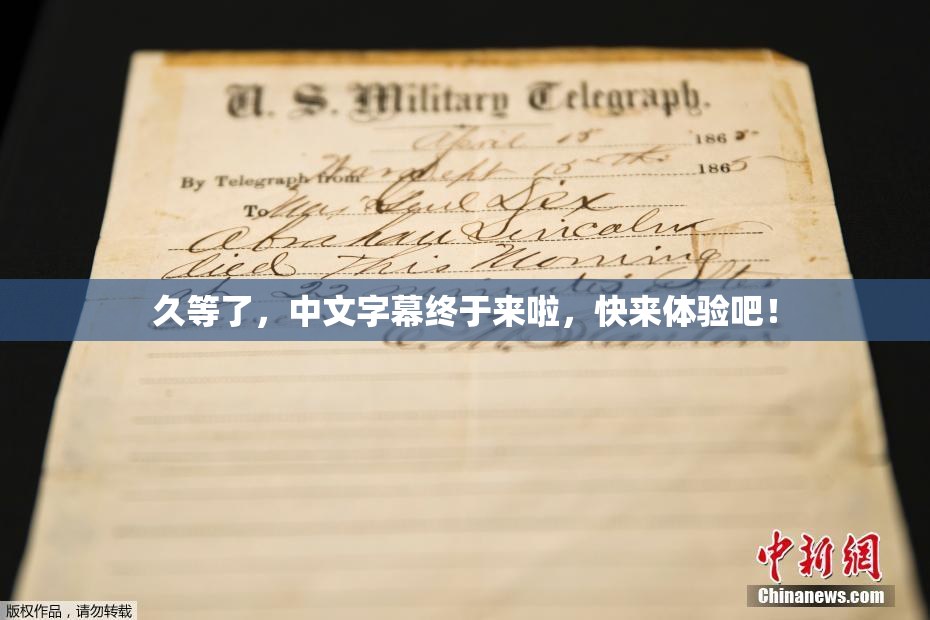 U. S. Military Telegraph.
April 15 1865
By Telegraph from War Dept 15th 1865
To Maj Genl Dix
Abraham Lincoln
died This Morning
at 22 minutes after
久等了，中文字幕终于来啦，快来体验吧！
E. M. Stanton
中新网
Chinanews.com
版权作品，请勿转载